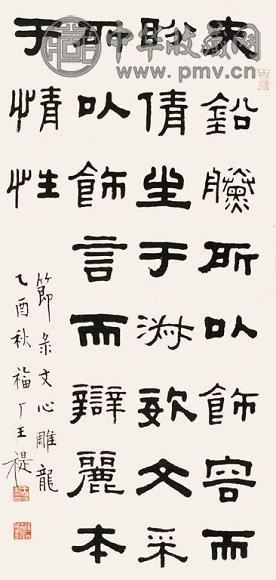 夫鉛黱所以飾容而
盼倩生于淑姿文采
所以飾言而辯麗本
于情性
節录文心雕龍
乙酉秋福厂王禔
中华收藏网
www.pmv.cn